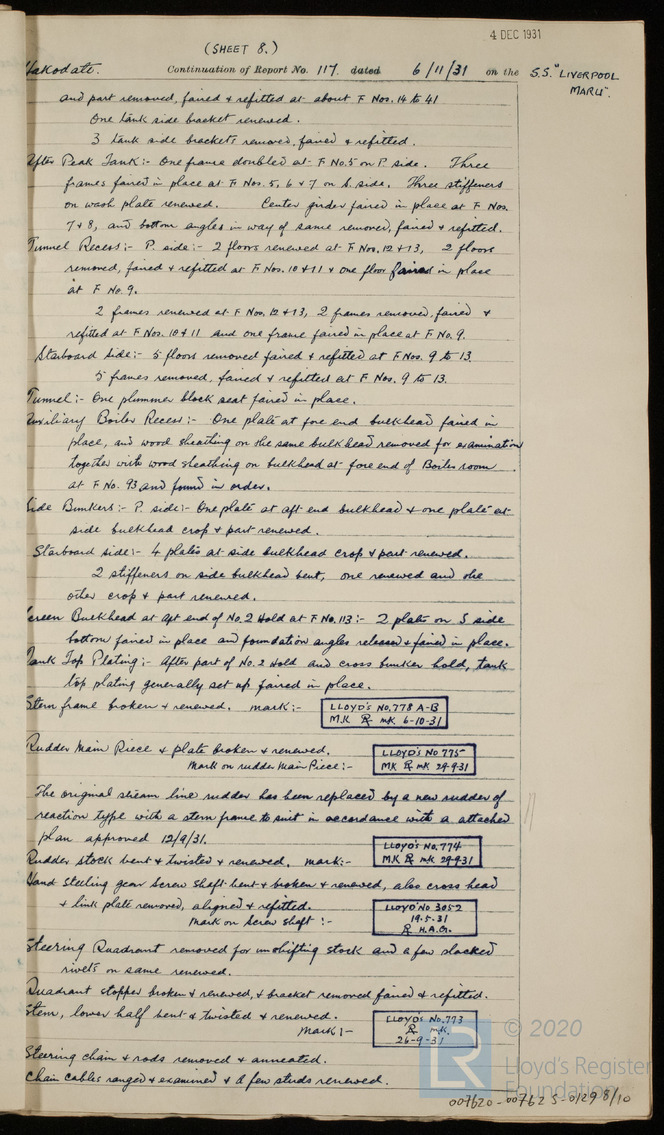 4 DEC 1931
(SHEET 8.)
Hakodate. Continuation of Report No. 117. dated 6/11/31 on the S.S. "LIVERPOOL
MARU".
and part removed, faired & refitted at about F Nos. 14 to 41
One tank side bracket renewed.
3 tank side brackets removed, faired & refitted.
After Peak Tank:- One frame doubled at F No.5 on P. side. Three
frames faired in place at F Nos. 5, 6 & 7 on S. side. Three stiffeners
on wash plate renewed. Center girder faired in place at F Nos.
7 & 8, and bottom angles in way of same removed, faired & refitted.
Tunnel Recess:- P. side:- 2 floors renewed at F Nos. 12 & 13, 2 floors
removed, faired & refitted at F Nos. 10 & 11 & one floor faired in place
at F No. 9.
2 frames renewed at F Nos. 12 & 13, 2 frames removed, faired &
refitted at F Nos. 10 & 11 and one frame faired in place at F No. 9.
Starboard side:- 5 floors removed faired & refitted at F Nos. 9 to 13.
5 frames removed, faired & refitted at F Nos. 9 to 13.
Tunnel:- One plummer block seat faired in place.
Auxiliary Boiler Recess:- One plate at fore end bulkhead faired in
place, and wood sheathing on the same bulkhead removed for examination
together with wood sheathing on bulkhead at fore end of Boiler room
at F No. 93 and found in order.
Side Bunkers:- P. side:- One plate at aft end bulkhead & one plate at
side bulkhead crop & part renewed.
Starboard side:- 4 plates at side bulkhead crop & part renewed.
2 stiffeners on side bulkhead bent, one renewed and the
other crop & part renewed.
Screen Bulkhead at aft end of No. 2 Hold at F No. 113:- 2 plates on S side
bottom faired in place and foundation angles released & faired in place.
Tank Top Plating:- After part of No. 2 Hold and cross bunker hold, tank
top plating generally set up faired in place.
Stern frame broken & renewed. mark:- LLOYD'S No. 778 A-B
M.K R mk 6-10-31
Rudder Main Piece & plate broken & renewed. LLOYD'S No 775
Mark on rudder Main Piece:- MK R mk 29-9-31
The original stream line rudder has been replaced by a new rudder of
reaction type with a stern frame to suit in accordance with a attached
plan approved 12/9/31. LLOYD'S No. 774
Rudder stock bent & twisted & renewed. mark:- M.K R mk 29-9-31
Hand steering gear screw shaft bent & broken & renewed, also cross head
& link plate removed, aligned & refitted. LLOYD'S No 3052
Mark on screw shaft:- 19.5.31
R H.A.G.
Steering Quadrant removed for unshifting stock and a few slacked
rivets on same renewed.
Quadrant stopper broken & renewed, & bracket removed faired & refitted.
Stem, lower half bent & twisted & renewed. LLOYD'S No. 773
mark:- R mk.
26-9-31
Steering chain & rods removed & annealed.
Chain cables ranged & examined & a few studs renewed.
LR
© 2020
Lloyd's Register
Foundation
007620-007625-0129 8/10